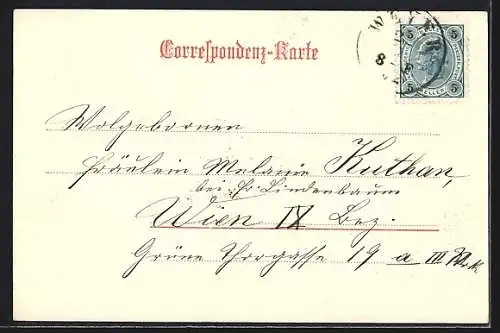 Correspondenz-Karte
5 5
5 HELLER 5
8
Wolgebornen
Fräulein Melanie Kuthan,
bei Fr. Lindenbaum
Wien IX Bez.
Grüne Thorgasse 19 a III